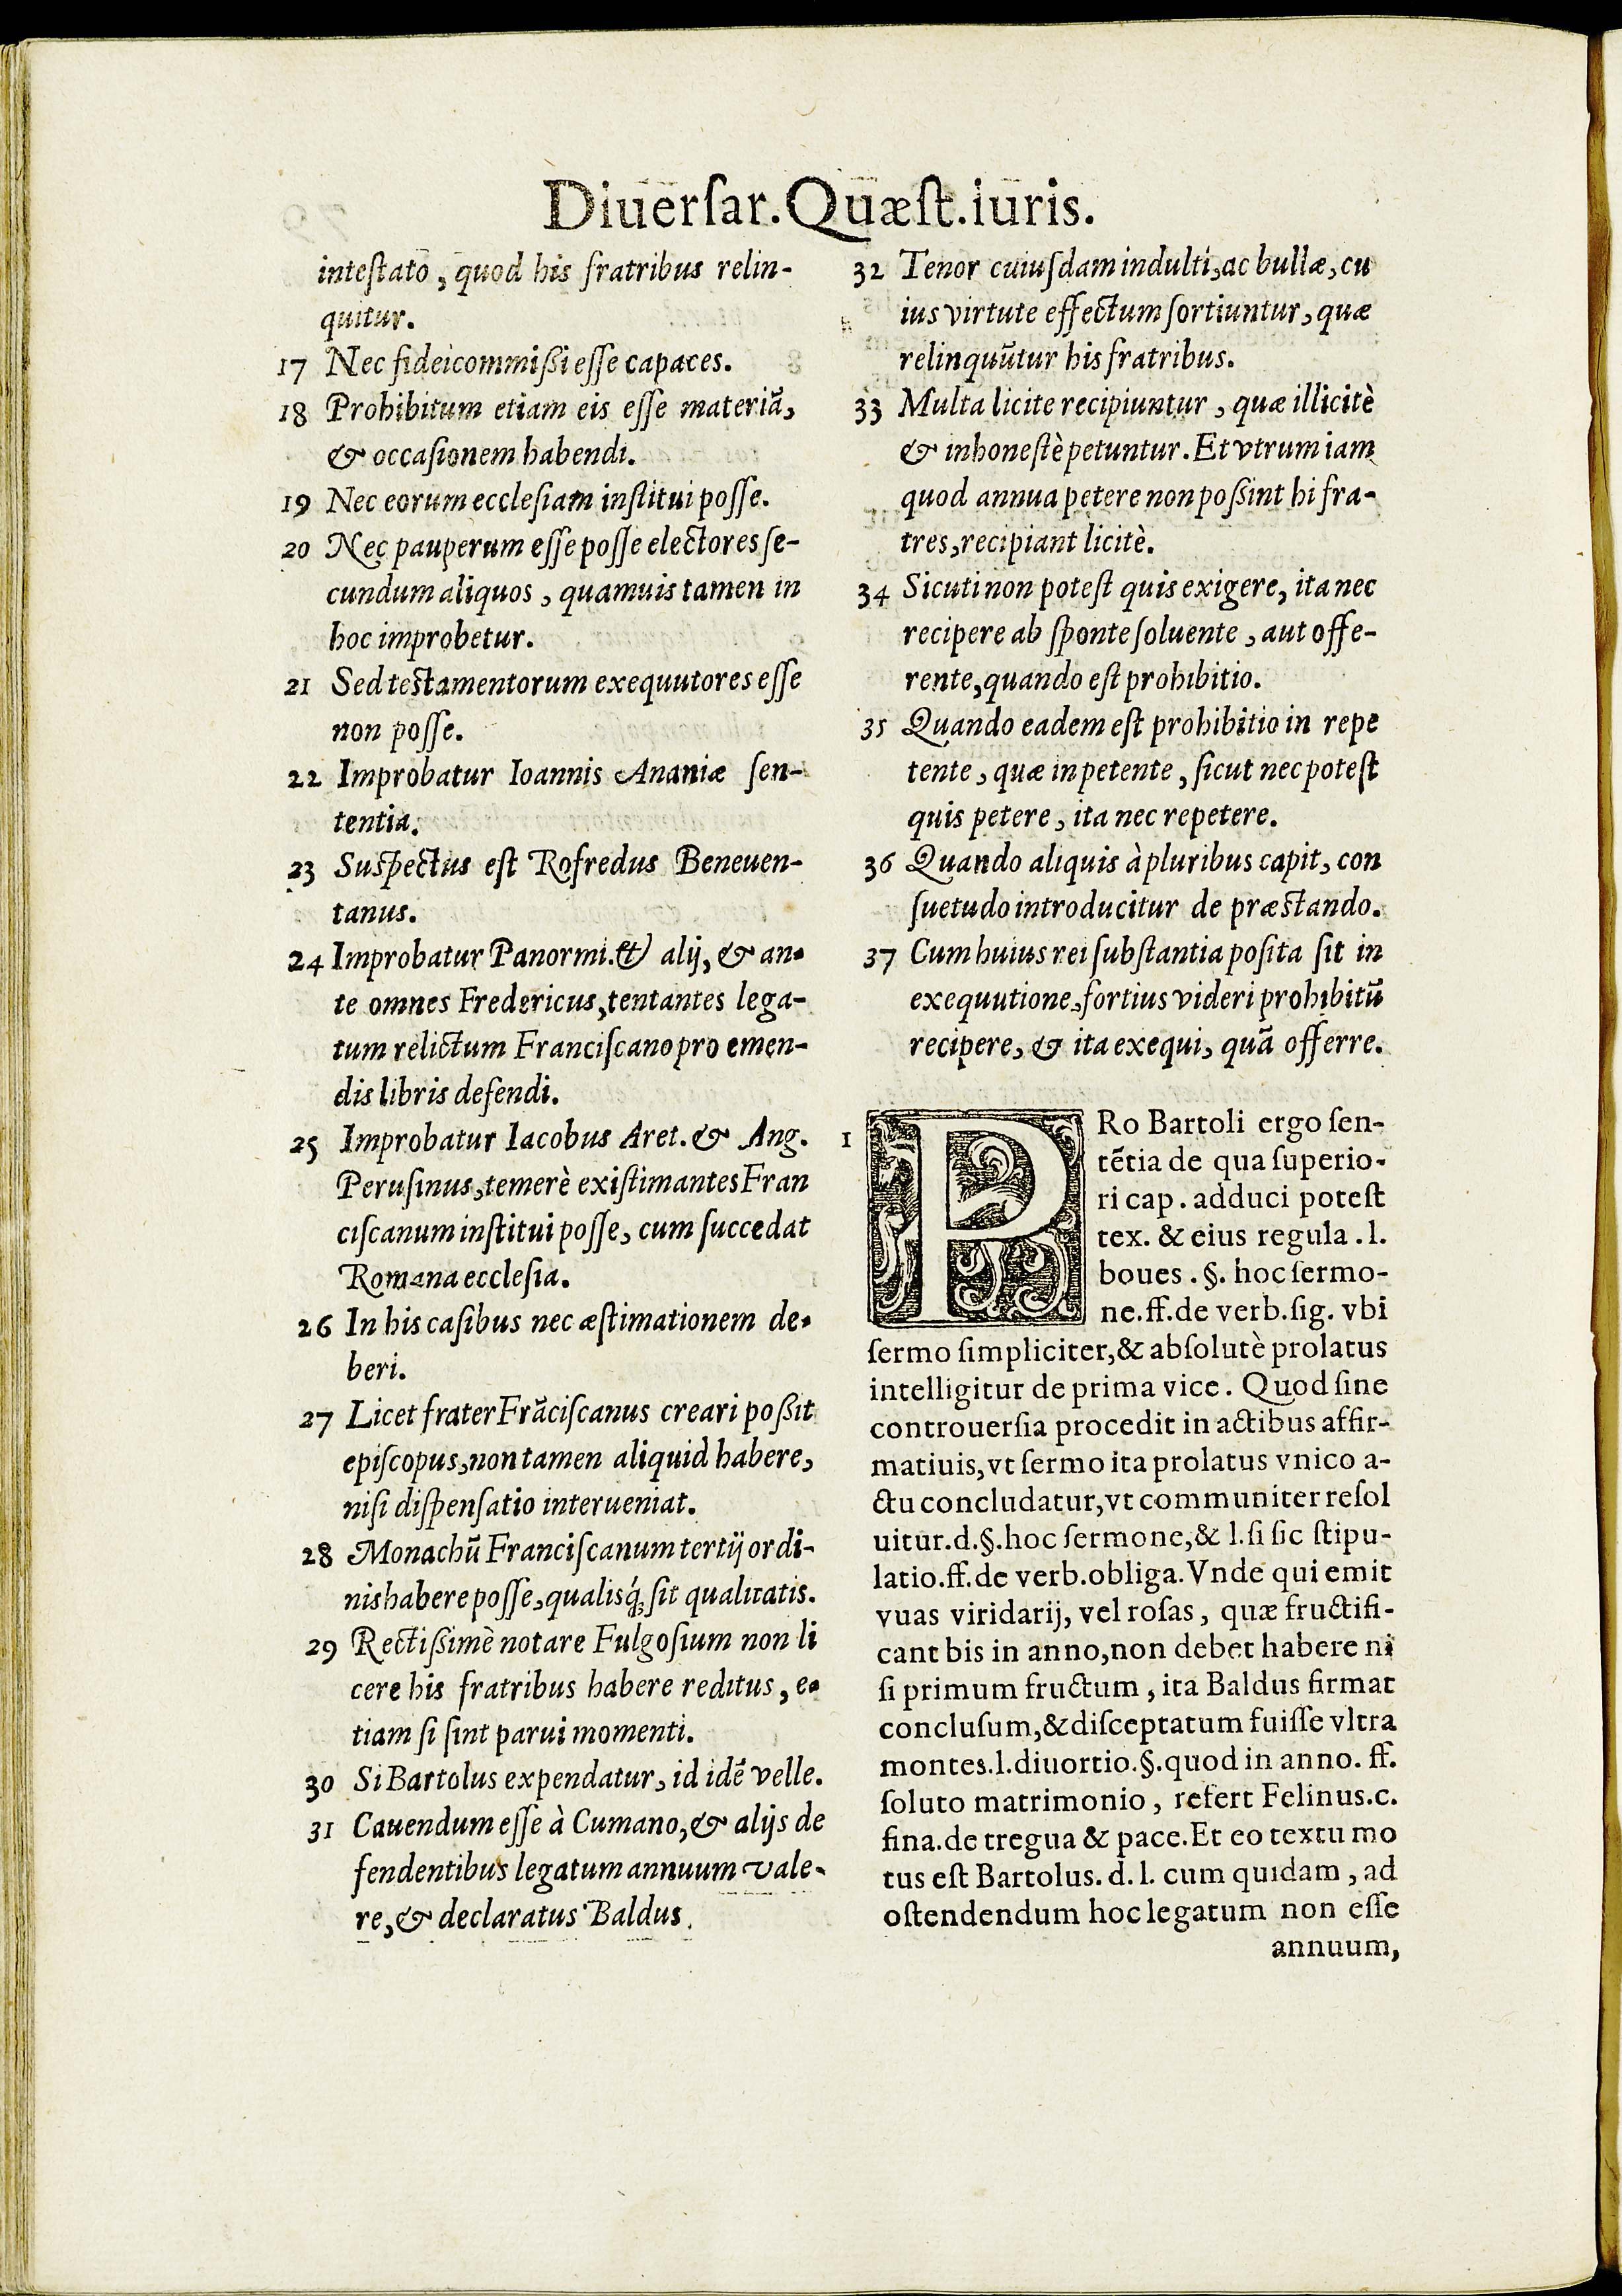 Diuerſar.Quæſt.iuris.
inteſtato, quod his fratribus relin-
quitur.
17 Nec fideicommißi eſſe capaces.
18 Prohibitum etiam eis eſſe materiā,
& occaſionem habendi.
19 Nec eorum eccleſiam inſtitui poſſe.
20 Nec pauperum eſſe poſſe electores ſe-
cundum aliquos, quamuis tamen in
hoc improbetur.
21 Sed teſtamentorum exequutores eſſe
non poſſe.
22 Improbatur Ioannis Ananiæ ſen-
tentia.
23 Suſpectus eſt Rofredus Beneuen-
tanus.
24 Improbatur Panormi. & alij, & an-
te omnes Fredericus, tentantes lega-
tum relictum Franciſcano pro emen-
dis libris defendi.
25 Improbatur Iacobus Aret. & Ang.
Peruſinus, temerè exiſtimantes Fran
ciſcanum inſtitui poſſe, cum ſuccedat
Romana eccleſia.
26 In his caſibus nec æſtimationem de-
beri.
27 Licet frater Frāciſcanus creari poßit
epiſcopus, non tamen aliquid habere,
niſi diſpenſatio interueniat.
28 Monachū Franciſcanum tertij ordi-
nis habere poſſe, qualisq́; ſit qualitatis.
29 Rectißimè notare Fulgoſium non li
cere his fratribus habere reditus, e-
tiam ſi ſint parui momenti.
30 Si Bartolus expendatur, id idē velle.
31 Cauendum eſſe à Cumano, & alijs de
fendentibus legatum annuum vale-
re, & declaratus Baldus.
32 Tenor cuiuſdam indulti, ac bullæ, cu
ius virtute effectum ſortiuntur, quæ
relinquūtur his fratribus.
33 Multa licite recipiuntur, quæ illicitè
& inhoneſtè petuntur. Et vtrum iam
quod annua petere non poßint hi fra-
tres, recipiant licitè.
34 Sicuti non poteſt quis exigere, ita nec
recipere ab ſponte ſoluente, aut offe-
rente, quando eſt prohibitio.
35 Quando eadem eſt prohibitio in repe
tente, quæ in petente, ſicut nec poteſt
quis petere, ita nec repetere.
36 Quando aliquis à pluribus capit, con
ſuetudo introducitur de præſtando.
37 Cum huius rei ſubſtantia poſita ſit in
exequutione, fortius videri prohibitū
recipere, & ita exequi, quā offerre.
1 PRo Bartoli ergo ſen-
tētia de qua ſuperio-
ri cap. adduci poteſt
tex. & eius regula .l.
boues .§. hoc ſermo-
ne.ff.de verb.ſig. vbi
ſermo ſimpliciter,& abſolutè prolatus
intelligitur de prima vice. Quod ſine
controuerſia procedit in actibus affir-
matiuis, vt ſermo ita prolatus vnico a-
ctu concludatur, vt communiter reſol
uitur.d.§.hoc ſermone,& l.ſi ſic ſtipu-
latio.ff.de verb.obliga.Vnde qui emit
vuas viridarij, vel roſas, quæ fructifi-
cant bis in anno, non debet habere ni
ſi primum fructum, ita Baldus firmat
concluſum,& diſceptatum fuiſſe vltra
montes.l.diuortio.§.quod in anno. ff.
ſoluto matrimonio, refert Felinus.c.
fina.de tregua & pace.Et eo textu mo
tus eſt Bartolus. d. l. cum quidam, ad
oſtendendum hoc legatum non eſſe
annuum,